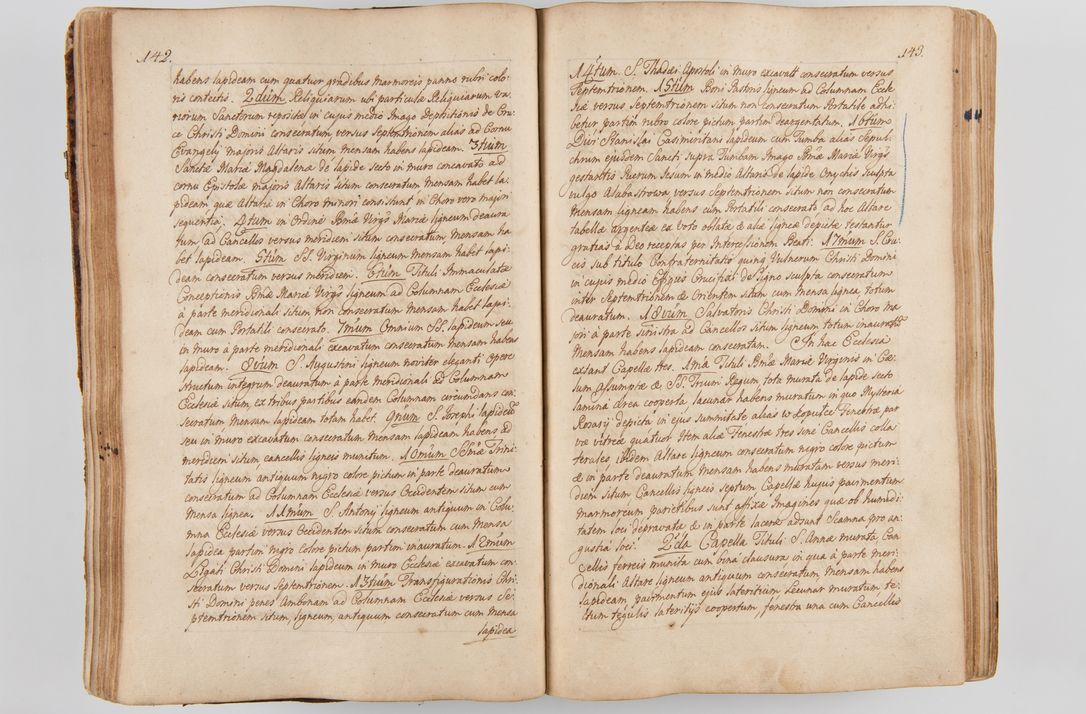 142.
habens lapideam cum quatuor gradibus marmoreis panno rubri colo-
ris contectis. 2dum Reliquiarum ubi particulæ Reliquiarum va-
riorum Sanctorum repositæ in cujus medio Imago Depositionis de Cru-
ce Christi Domini consecratum, versus septentrionem alias ad Cornu
Evangelij majoris Altaris situm mensam habens lapideam. 3tium
Sanctæ Mariæ Magdalenæ de lapide secto in muro concavato ad
cornu Epistolæ majoris Altaris situm consecratum mensam habet la-
pideam quæ Altaria in Choro minori consistunt in Choro vero majori
sequentia; 4tum in Ordine Bmæ Virgis Mariæ ligneum deaura-
tum ad Cancellos versus meridiem situm consecratum, mensam ha-
bet lapideam. 5tum SS. Virginum ligneum mensam habet lapi-
deam consecratum versus meridiem. 6tum Tituli Immaculatæ
Conceptionis Bmæ Mariæ Virgis ligneum ad Columnam Ecclesiæ
à parte meridionali situm non consecratum Mensam habet lapi-
deam cum Portatili consecrato. 7mum Omnium SS. lapideum seu
in muro à parte meridionali excavatum consecratum mensam habens
lapideam. 8vum S. Augustini ligneum noviter eleganti opere
structum integrum deauratum a parte meridionali ad Columnam
Ecclesiæ situm, ex tribus partibus eandem Columnam circumdans con-
secratum Mensam lapideam totam habet. 9num S. Josephi lapideum
seu in muro excavatum consecratum mensam lapideam habens ad
meridiem situm, cancellis ligneis munitum. 10mum SSmæ Trini-
tatis ligneum antiquum nigro colore pictum in parte deauratum
consecratum ad Columnam Ecclesiæ versus Occidentem situm cum
Mensa lignea. 11mum S. Antonij ligneum antiquum in Colu-
mna Ecclesiæ versus Occidentem situm consecratum cum mensa
lapidea partim nigro colore pictum partim inauratum. 12mum
Ligati Christi Domini lapideum in muro Ecclesiæ excavatum con-
secratum versus septentrionem. 13tium Transfigurationis Chri-
sti Domini penes Ambonam ad Columnam Ecclesiæ versus Se-
ptemtrionem situm, ligneum, antiquum consecratum cum mensa
lapidea
143.
14tum S. Thadæi Apostoli in muro excavatum consecratum versus
Septentrionem. 15tum Boni Pastoris ligneum ad Columnam Eccle-
siæ versus Septentrionem situm non consecratum Portatile adhi-
betur partim rubro colore pictum partim deargentatum. 16tum
Divi Stanislai Casimiritani lapideum cum Tumba alias Sepul-
chrum ejusdem Sancti supra Tumbam Imago Bmæ Mariæ Virgis
gestantis Puerum Jesum in medio Altaris de lapide Onychis sculpta
vulgo Alabastrowa versus septemtrionem situm non consecratum
Mensam ligneam habens cum Portatili consecrato ad hoc Altare
tabellæ argenteæ ex voto oblatæ & aliæ ligneæ depictæ testantur
gratias à Deo receptas per Intercessionem Beati. 17mum S. Cru-
cis sub titulo Confraternitatis quinque Vulnerum Christi Domini
in cujus medio Effigies Crucifixi de ligno sculpta consecratum
inter Septemtrionem & Orientem situm cum Mensa lignea totum
deauratum. 18vum Salvatoris Christi Domini in Choro ma-
jori à parte sinistra ad Cancellos situm ligneum totum inauratum
Mensam habens lapideam consecratam. In hac Ecclesia
exstant Capellæ tres. 1ma Tituli Bmæ Mariæ Virginis in Cæ-
lum Assumptæ & SS. Trium Regum tota murata de lapide secto
lamina ærea cooperta lacunar habens muratum in quo Mysteria
Rosarij depicta in ejus summitate alias w Kopułce Fenestræ par-
væ vitreæ quatuor Item aliæ Fenestræ tres sine Cancellis colla-
terales, ibidem Altare ligneum consecratum nigro colore pictum
& in parte deauratum Mensam habens muratam versus meri-
diem situm Cancellis ligneis septum Capellæ hujus pavimentum
marmoreum parietibus sunt affixæ Imagines quæ ob humidi-
tatem loci depravatæ & in parte laceræ adsunt Scamna pro an-
gustia loci. 2da Capella Tituli S. Annæ murata, Can-
cellis ferreis munita cum bina clausura in qua à parte meri-
dionali Altare ligneum antiquum consecratum, Mensam habens
lapideam pavimentum ejus lateritium Lacunar muratum te-
ctum tegulis lateritijs coopertum, fenestra una cum Cancellis